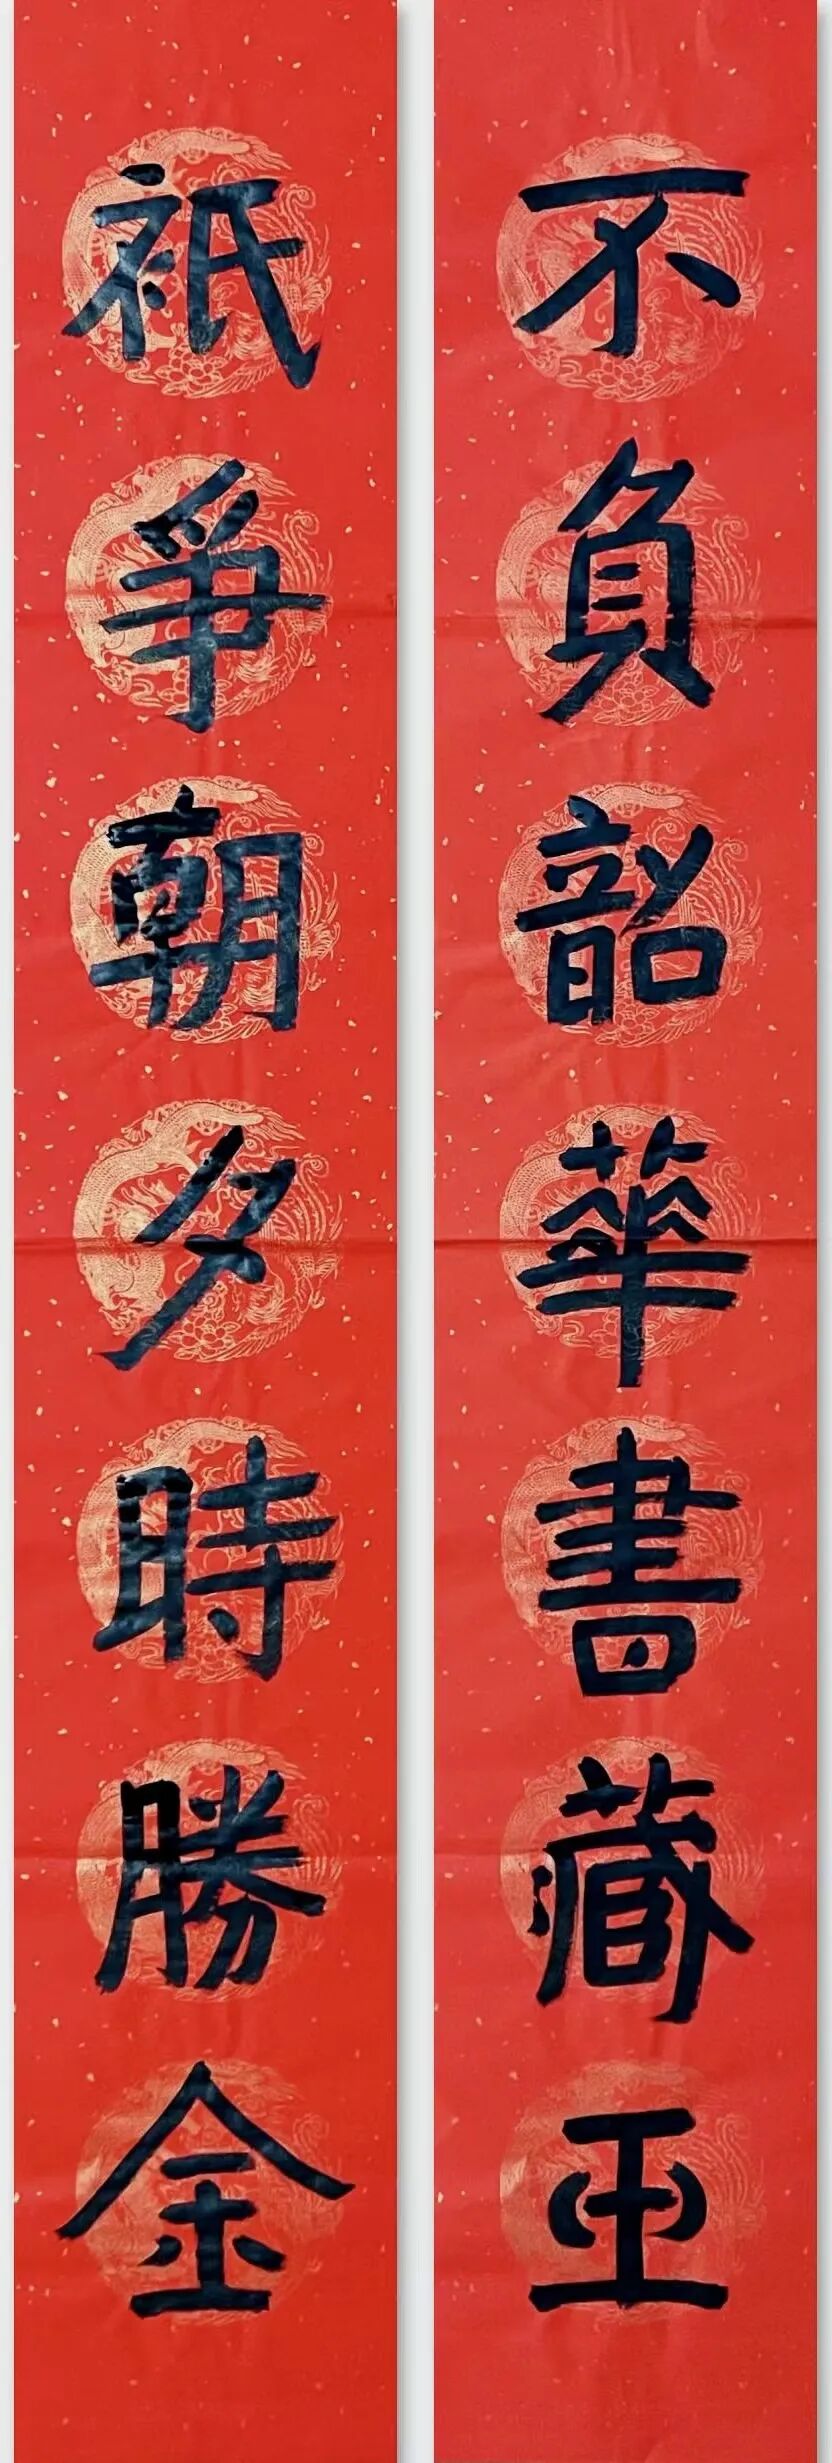 不負韶華書藏玉
祇爭朝夕時勝金